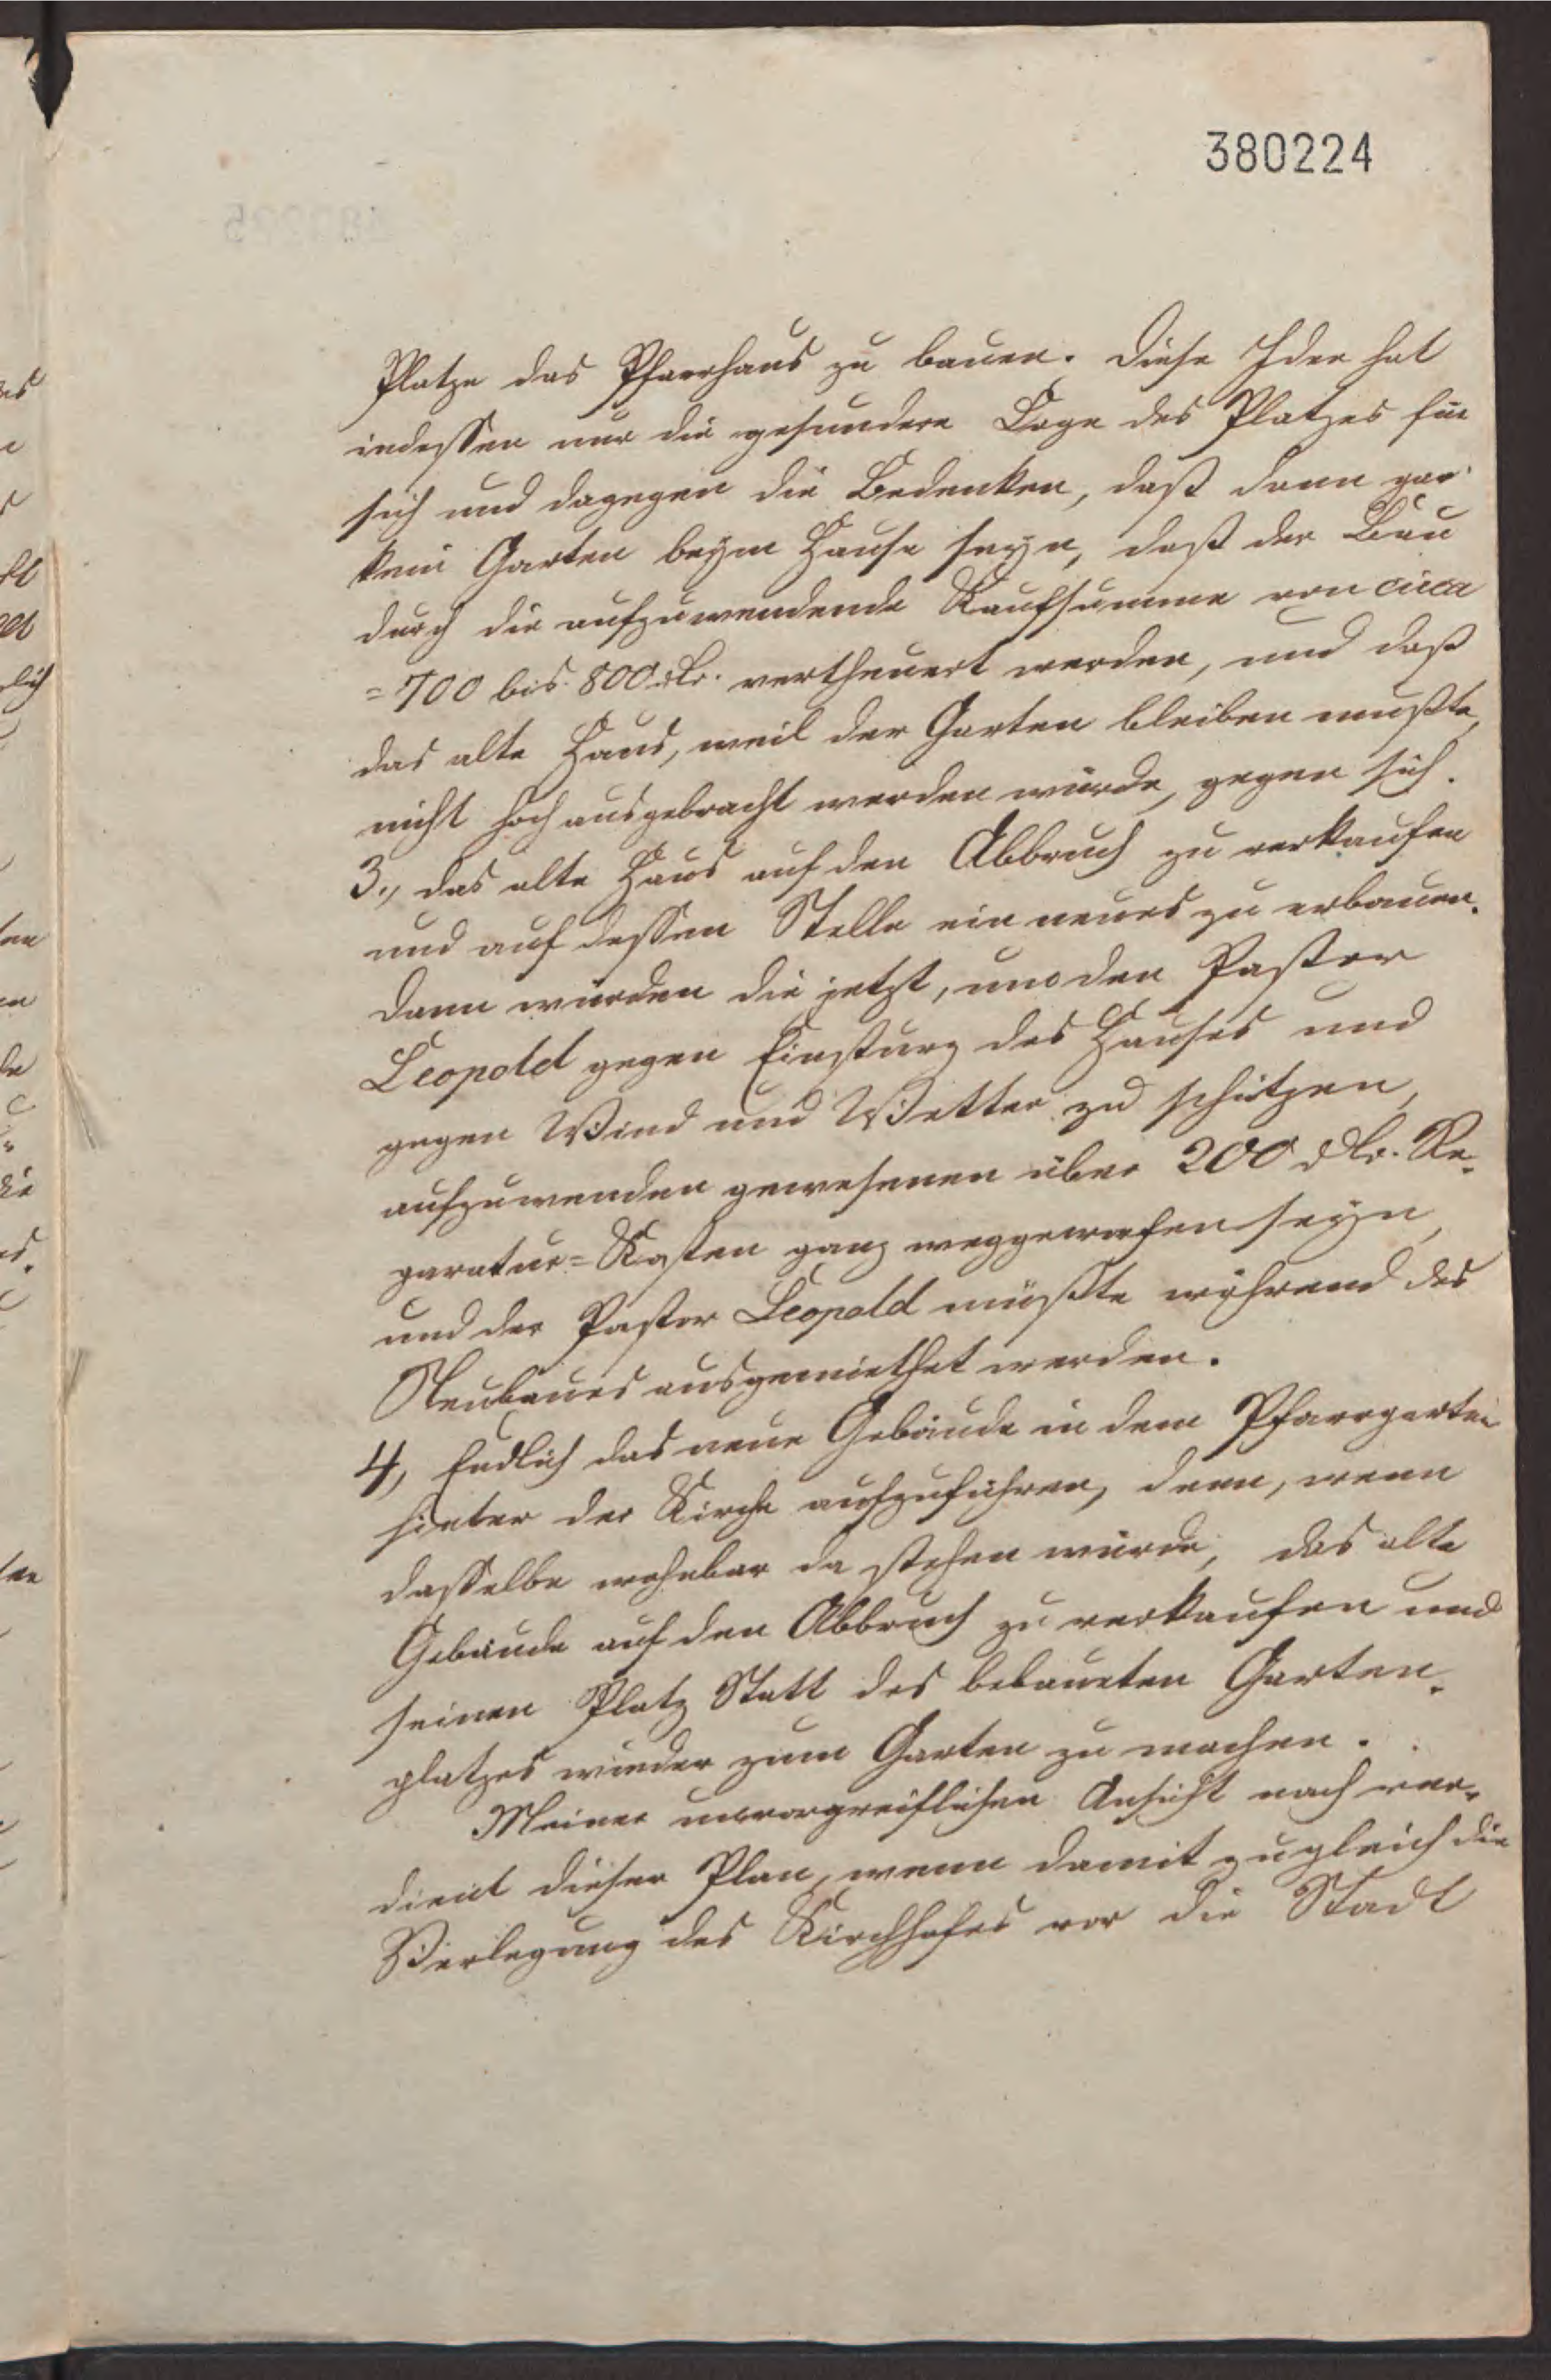 380224
Platze das Pfarrhaus zu bauen. Diese Idee hat
indessen nur die gesundere Lage des Platzes für
sich und dagegen die Bedenken, daß dann gar
kein Garten beym Hause seyn, daß der Bau
durch die aufzuwendende Kaufsumme von circa
=700 bis 800 rlr. vertheuert werden, und daß
das alte Haus, weil der Garten bleiben mußte,
nicht hoch ausgebracht werden würde, gegen sich.
3., das alte Haus auf den Abbruch zu verkaufen
und auf dessen Stelle ein neues zu erbauen.
Dann würden die jetzt, um den Pastor
Leopold gegen Einsturz des Hauses und
gegen Wind und Wetter zu schützen,
aufzuwenden gewesenen über 200 rlr. Re-
paratur=Kosten ganz weggeworfen seyn,
und der Pastor Leopold müßte während des
Neubaues ausgemiethet werden.
4, Endlich das neue Gebäude in dem Pfarrgarten
hinter der Kirche aufzuführen, dann, wenn
dasselbe wohnbar da stehen würde, das alte
Gebäude auf den Abbruch zu verkaufen und
seinen Platz Statt des bebaueten Garten-
platzes wieder zum Garten zu machen.
Meiner unvorgreiflichen Ansicht nach ver-
dient dieser Plan, wenn damit zugleich die
Verlegung des Kirchhofes vor die Stadt